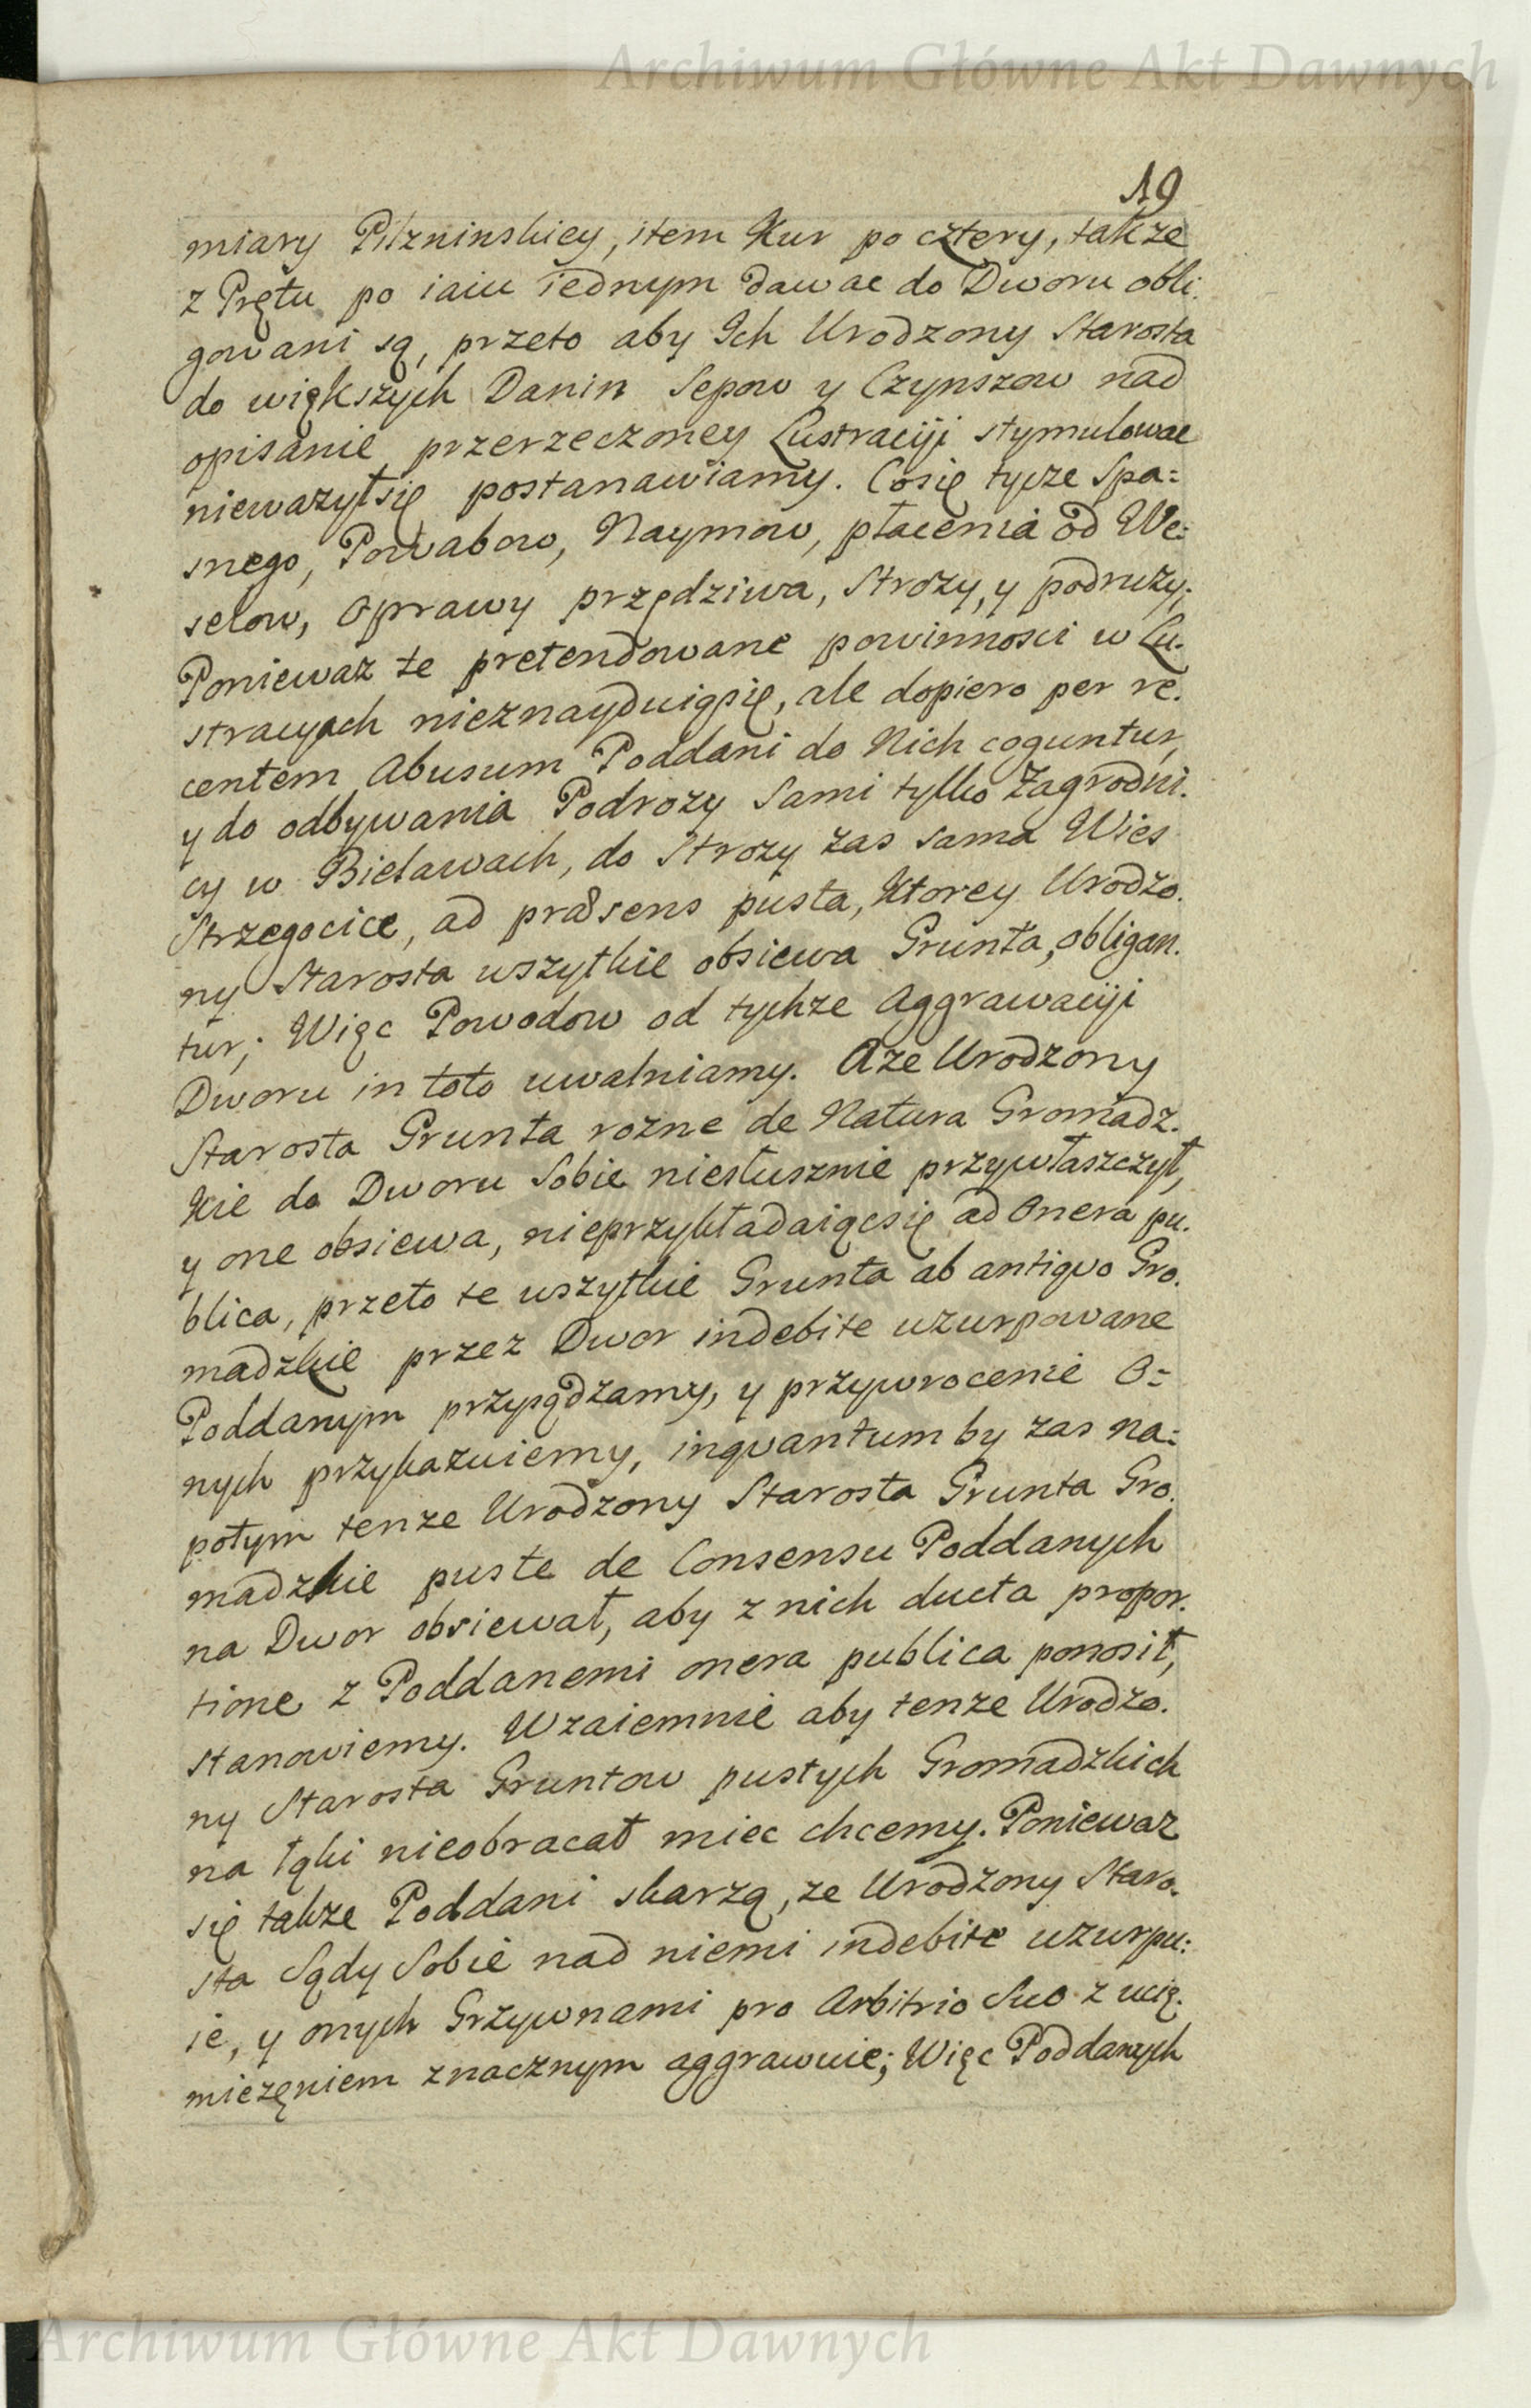 Archiwum Główne Akt Dawnych
19
miary Pilzninskiey, item Kur po cztery, takze
z Prętu po iaiu iednym dawac do Dworu obli.
gowani są, przeto aby Ich Urodzony Starosta
do większych Danin Sepow y Czynszow nad
opisanie przerzeczoney Lustracyji stymulowac
niewazył się postanawiamy. Cosię tycze Spa=
snego, Powabow, Naymow, płacenia od We=
selow, Oprawy przędziwa, Strozy, y podruzy;
Poniewaz te pretendowane powinnosci w Lu.
stracyach nieznayduiąsię, ale dopiero per re.
centem Abusum Poddani do Nich coguntur,
y do odbywania Podrozy Sami tylko Zagrodni.
cy w Bielawach, do Strozy zas sama Wies
Strzegocice, ad præsens pusta, Ktorey Urodzo.
ny Starosta wszytkie obsiewa Grunta, obligan.
tur; Więc Powodow od tychze Aggrawacyji
Dworu in toto uwalniamy. Aze Urodzony
Starosta Grunta rozne de Natura Gromadz.
kie do Dworu Sobie niesłusznie przywłaszczył,
y one obsiewa, nieprzykładaiącsię ad Onera pu.
blica, przeto te wszytkie Grunta ab antiqvo Gro.
madzkie przez Dwor indebite uzurpowane
Poddanym przysądzamy, y przywrocenie O=
nych przykazuiemy, inqvantum by zas na=
potym tenze Urodzony Starosta Grunta Gro.
madzkie puste de Consensu Poddanych
na Dwor obsiewał, aby z nich ducta propor.
tione z Poddanemi onera publica ponosił,
stanowiemy. Wzaiemnie aby tenze Urodzo.
ny Starosta Gruntow pustych Gromadzkich
na łąki nieobracał miec chcemy. Poniewaz
się takze Poddani skarzą, ze Urodzony Staro.
sta Sądy Sobie nad niemi indebite uzurpu=
ie, y onych Grzywnami pro Arbitrio Suo z ucię.
mięzęniem znacznym aggrawuie; Więc Poddanych
Archiwum Główne Akt Dawnych